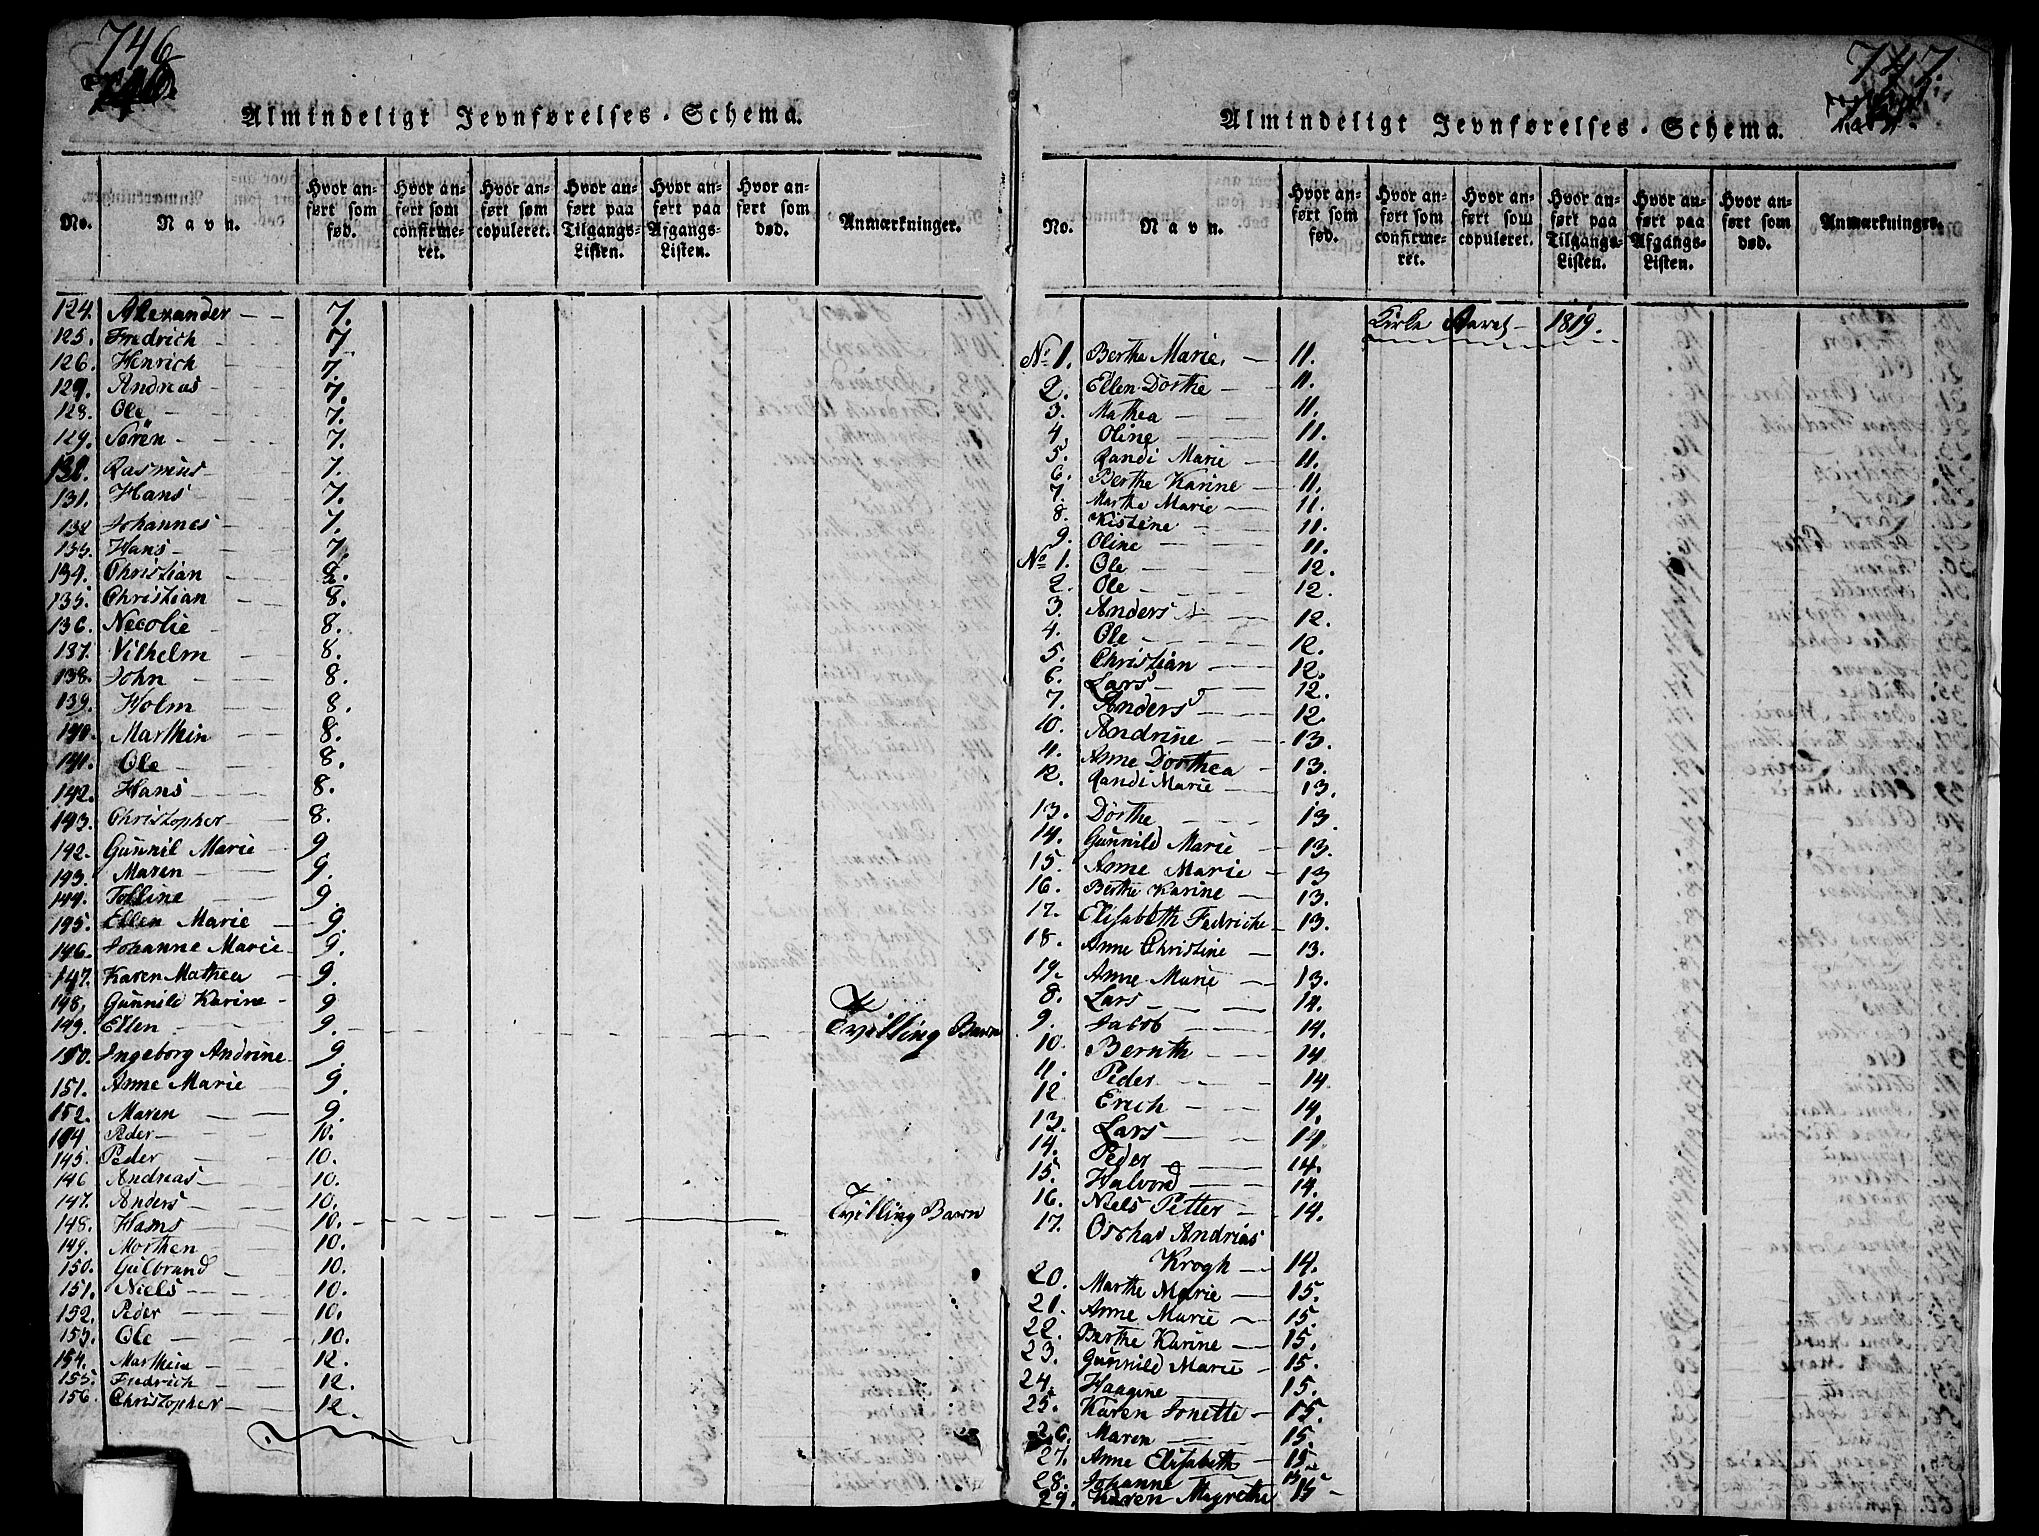 746
Almindeligt Jevnførelses-Schema.
No. Navn. Hvor anført som fød. Hvor anført som confirmeret. Hvor anført som copuleret. Hvor anført paa Tilgangs-Listen. Hvor anført paa Afgangs-Listen. Hvor anført som død. Anmærkninger.
124. Alexander 7.
125. Fredrich 7
126. Henrich 7.
129. Andreas 7.
128. Ole 7.
129. Sören 7.
130. Rasmus 7.
131. Hans 7.
132 Johannes 7.
133. Hans 7.
134. Christian 8.
135. Christian 8.
136. Necolie 8.
137. Vilhelm 8.
138. John 8.
139. Holm 8.
140. Marthin 8.
141. Ole 8.
142. Hans 8.
143. Christopher 8.
142. Gunnil Marie 9.
143. Maren 9.
144. Tolline 9.
145. Ellen Marie 9.
146. Johanne Marie 9.
147. Karen Mathea 9.
148. Gunnild Karine 9
149. Ellen 9. Tvilling Barn
150. Ingeborg Andrine 9.
151. Anne Marie 9.
152. Maren 9.
144 Peder 10.
145. Peder 10.
146 Andreas 10.
147. Anders 10.
148. Hans 10. Tvilling Barn
149. Morthen 10.
150. Gulbrand 10.
151. Niels 10.
152. Peder 10.
153. Ole 10.
154. Marthin 12.
155. Fredrich 12.
156. Christopher 12.
747.
Almindeligt Jevnførelses-Schema.
No. Navn. Hvor anført som fød. Hvor anført som confirmeret. Hvor anført som copuleret. Hvor anført paa Tilgangs-Listen. Hvor anført paa Afgangs-Listen. Hvor anført som død. Anmærkninger.
Kirke Aaret 1819.
No 1. Berthe Marie 11.
2. Ellen Dorthe 11.
3. Mathea 11.
4. Oline 11.
5. Randi Marie 11.
6. Berthe Karine 11.
7. Marthe Marie 11.
8. Kistine 11.
9. Oline 11.
No 1. Ole 12.
2. Ole 12.
3. Anders 12.
4. Ole 12.
5. Christian 12.
6. Lars 12.
7. Anders 12.
10. Andrine 13.
11. Anne Dorthea 13.
12. Randi Marie 13.
13. Dorthe 13.
14. Gunnild Marie 13.
15. Anne Marie 13
16. Berthe Karine 13.
17. Elisabeth Fedriche 13.
18. Anne Christine 13.
19. Anne Marie 13.
8. Lars 14.
9. Jacob 14.
10. Bernth 14
11. Peder 14
12 Erich 14.
13. Lars 14
14. Peder 14.
15. Halvord 14.
16. Niels Petter 14.
17. Andrias
Krogh 14.
20. Marthe Marie 15.
21. Anne Marie 15.
22. Berthe Karine 15.
23. Gunnild Marie 15.
24. Haagine 15.
25. Karen Jonette 15.
26. Maren 15.
27. Anne Elisabeth 15.
28. Johanne 15
29. Karen Magrethe 15